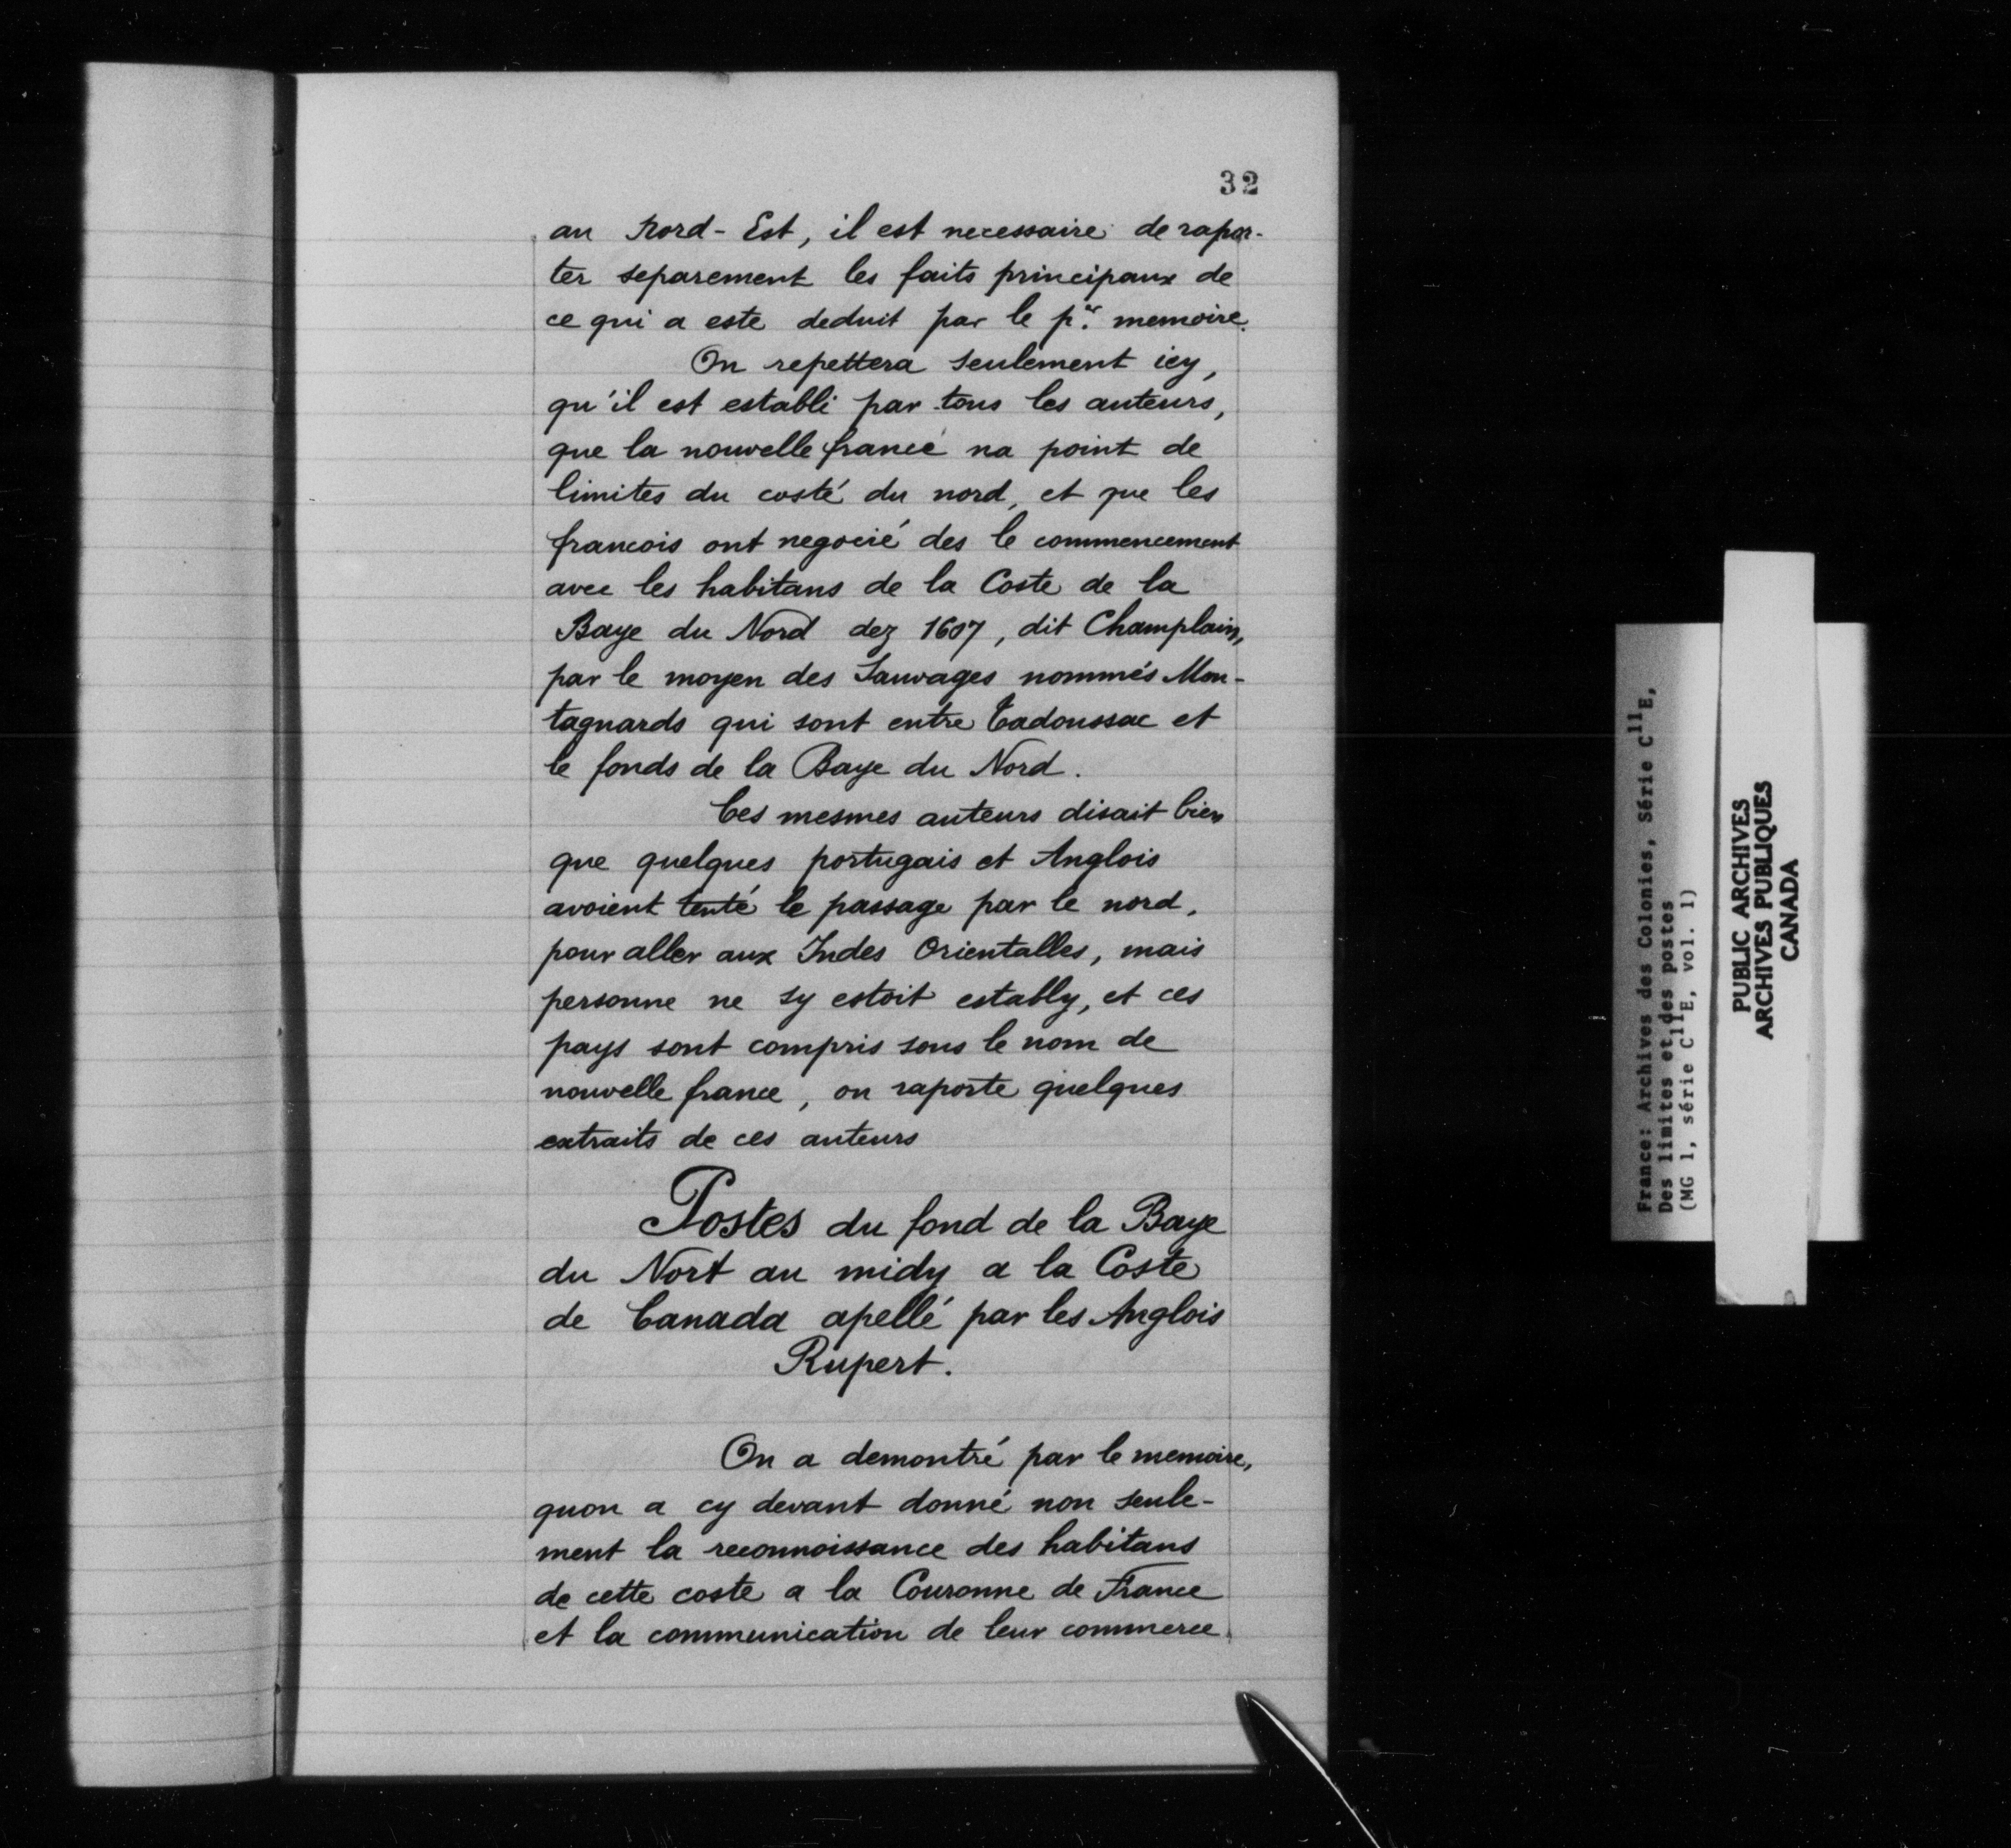 32
au Nord-Est, il est necessaire de rapor-
ter separement les faits principaux de
ce qui a este deduit par le p.er memoire.
On repettera seulement icy,
qu'il est establi par tous les auteurs,
que la nouvelle france na point de
limites du costé du nord, et que les
francois ont negocié des le commencement
avec les habitans de la Coste de la
Baye du Nord dez 1607, dit Champlain,
par le moyen des Sauvages nommés Mon-
tagnards qui sont entre Tadoussac et
le fonds de la Baye du Nord.
Ces mesmes auteurs disait bien
que quelques portugais et Anglois
avoient tenté le passage par le nord,
pour aller aux Indes Orientalles, mais
personne ne sy estoit estably, et ces
pays sont compris sous le nom de
nouvelle france, on raporte quelques
extraits de ces auteurs
Postes du fond de la Baye
du Nort au midy a la Coste
de Canada apellé par les Anglois
Rupert.
On a demontré par le memoire,
quon a cy devant donné non seule-
ment la reconnoissance des habitans
de cette coste a la Couronne de France
et la communication de leur commerce.
France: Archives des Colonies, Série C11E,
Des limites et des postes
(MG 1, série C11E, vol. 1)
PUBLIC ARCHIVES
ARCHIVES PUBLIQUES
CANADA